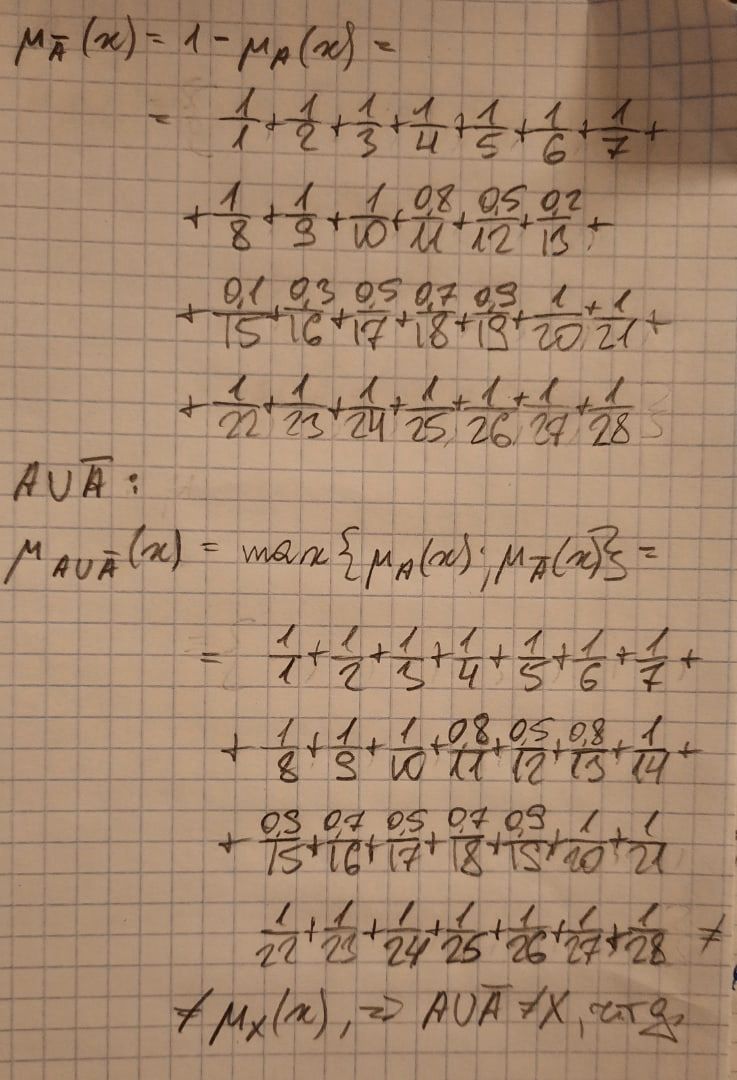 μ_Ā(x) = 1 - μ_A(x) =
= 1/1 + 1/2 + 1/3 + 1/4 + 1/5 + 1/6 + 1/7 +
+ 1/8 + 1/9 + 1/10 + 0,8/11 + 0,5/12 + 0,2/13 +
+ 0,1/15 + 0,3/16 + 0,5/17 + 0,7/18 + 0,9/19 + 1/20 + 1/21 +
+ 1/22 + 1/23 + 1/24 + 1/25 + 1/26 + 1/27 + 1/28
A∪Ā :
μ_A∪Ā(x) = max{μ_A(x); μ_Ā(x)} =
= 1/1 + 1/2 + 1/3 + 1/4 + 1/5 + 1/6 + 1/7 +
+ 1/8 + 1/9 + 1/10 + 0,8/11 + 0,5/12 + 0,8/13 + 1/14 +
+ 0,9/15 + 0,7/16 + 0,5/17 + 0,7/18 + 0,9/19 + 1/20 + 1/21
1/22 + 1/23 + 1/24 + 1/25 + 1/26 + 1/27 + 1/28 ≠
≠ μ_X(x), ⇒ A∪Ā ≠ X, чтд.